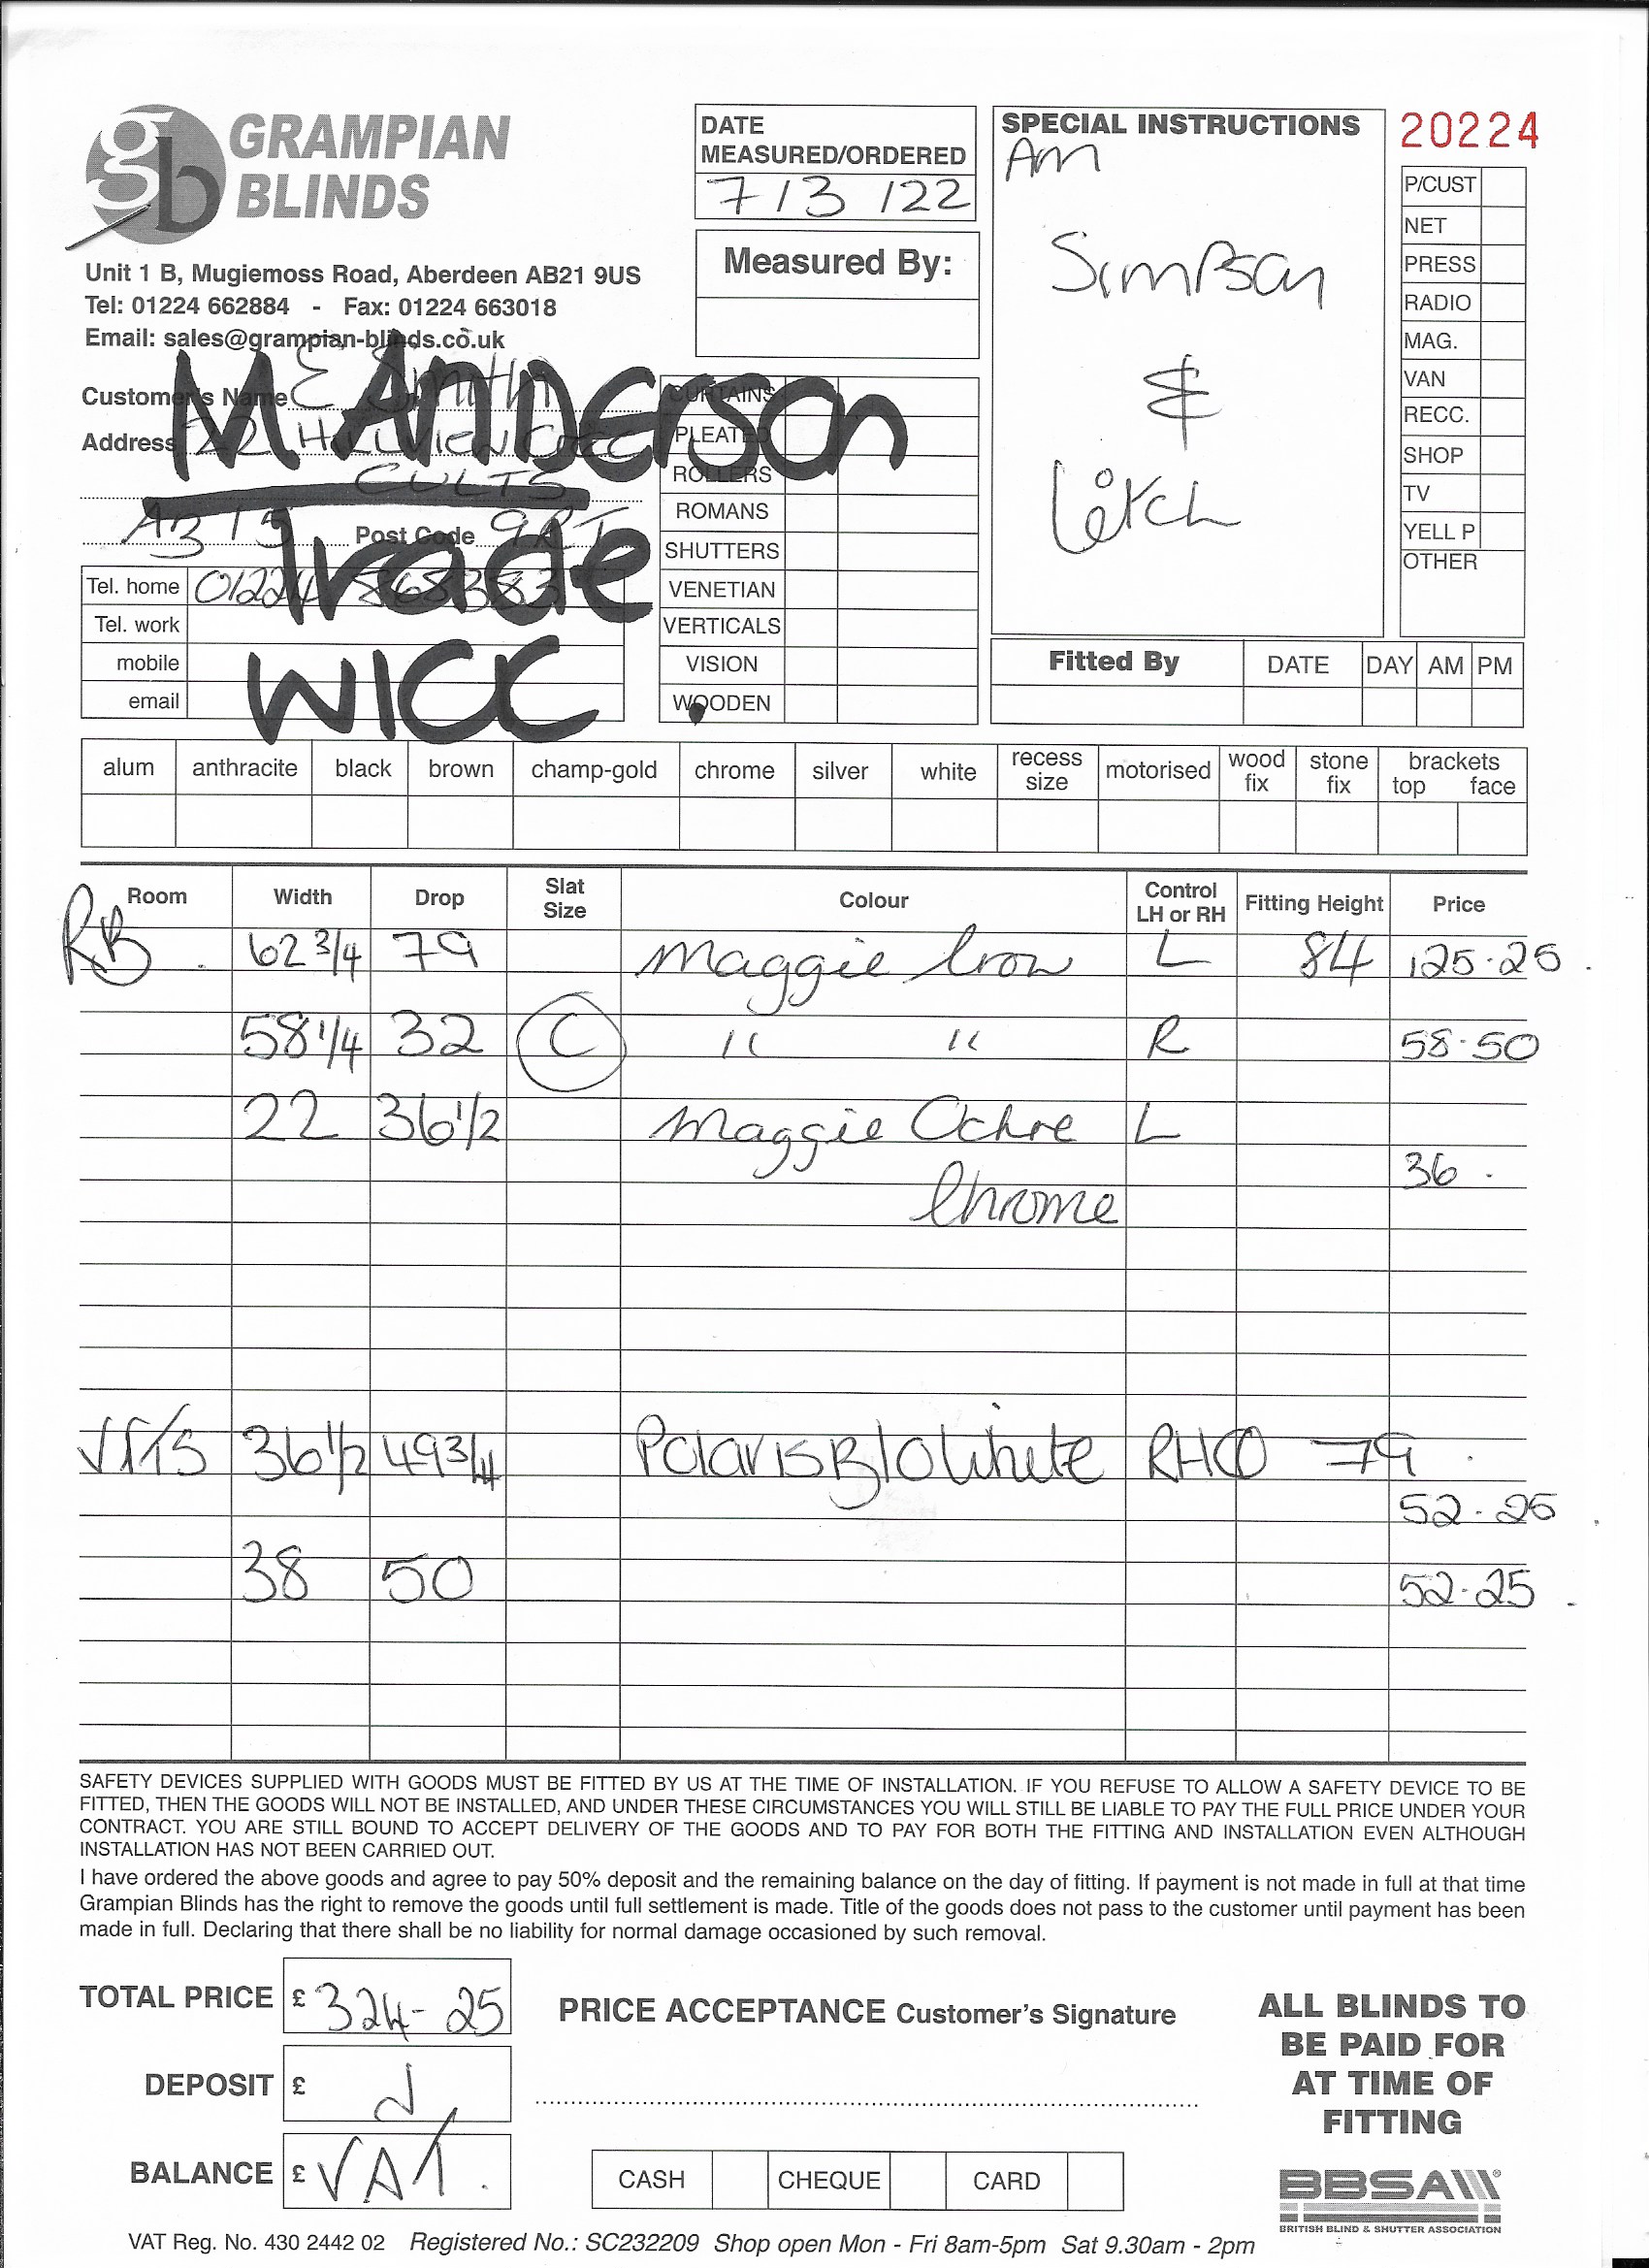 GRAMPIAN
BLINDS
gb
Unit 1 B, Mugiemoss Road, Aberdeen AB21 9US
Tel: 01224 662884 - Fax: 01224 663018
Email: sales@grampian-blinds.co.uk
DATE
MEASURED/ORDERED
7/3/22
Measured By:
SPECIAL INSTRUCTIONS
Am
Simpson
&
20224
P/CUST
NET
PRESS
RADIO
MAG.
VAN
RECC.
SHOP
TV
YELL P
OTHER
Customer's Name E Smith
M Anderson
Address 22 HILLVIEW
CULTS
AB15 Post Code 9RT
Trade
Tel. home 01224 868383
Tel. work
mobile
email
WICC
CURTAINS
PLEATED
ROLLERS
ROMANS
SHUTTERS
VENETIAN
VERTICALS
VISION
WOODEN
Fitted By DATE DAY AM PM
alum anthracite black brown champ-gold chrome silver white recess size motorised wood fix stone fix brackets top face
Room Width Drop Slat Size Colour Control LH or RH Fitting Height Price
RB 62 3/4 79 Maggie L 84 125-25
58 1/4 32 C " " R 58-50
22 36 1/2 Maggie Ochre L
36
Chrome
36 1/2 49 3/4 Polaris B/O White 79
52-25
38 50 52-25
SAFETY DEVICES SUPPLIED WITH GOODS MUST BE FITTED BY US AT THE TIME OF INSTALLATION. IF YOU REFUSE TO ALLOW A SAFETY DEVICE TO BE
FITTED, THEN THE GOODS WILL NOT BE INSTALLED, AND UNDER THESE CIRCUMSTANCES YOU WILL STILL BE LIABLE TO PAY THE FULL PRICE UNDER YOUR
CONTRACT. YOU ARE STILL BOUND TO ACCEPT DELIVERY OF THE GOODS AND TO PAY FOR BOTH THE FITTING AND INSTALLATION EVEN ALTHOUGH
INSTALLATION HAS NOT BEEN CARRIED OUT.
I have ordered the above goods and agree to pay 50% deposit and the remaining balance on the day of fitting. If payment is not made in full at that time
Grampian Blinds has the right to remove the goods until full settlement is made. Title of the goods does not pass to the customer until payment has been
made in full. Declaring that there shall be no liability for normal damage occasioned by such removal.
TOTAL PRICE £ 324-25
PRICE ACCEPTANCE Customer's Signature
DEPOSIT £
BALANCE £ VAT.
CASH CHEQUE CARD
ALL BLINDS TO
BE PAID FOR
AT TIME OF
FITTING
BBSA
BRITISH BLIND & SHUTTER ASSOCIATION
VAT Reg. No. 430 2442 02 Registered No.: SC232209 Shop open Mon - Fri 8am-5pm Sat 9.30am - 2pm